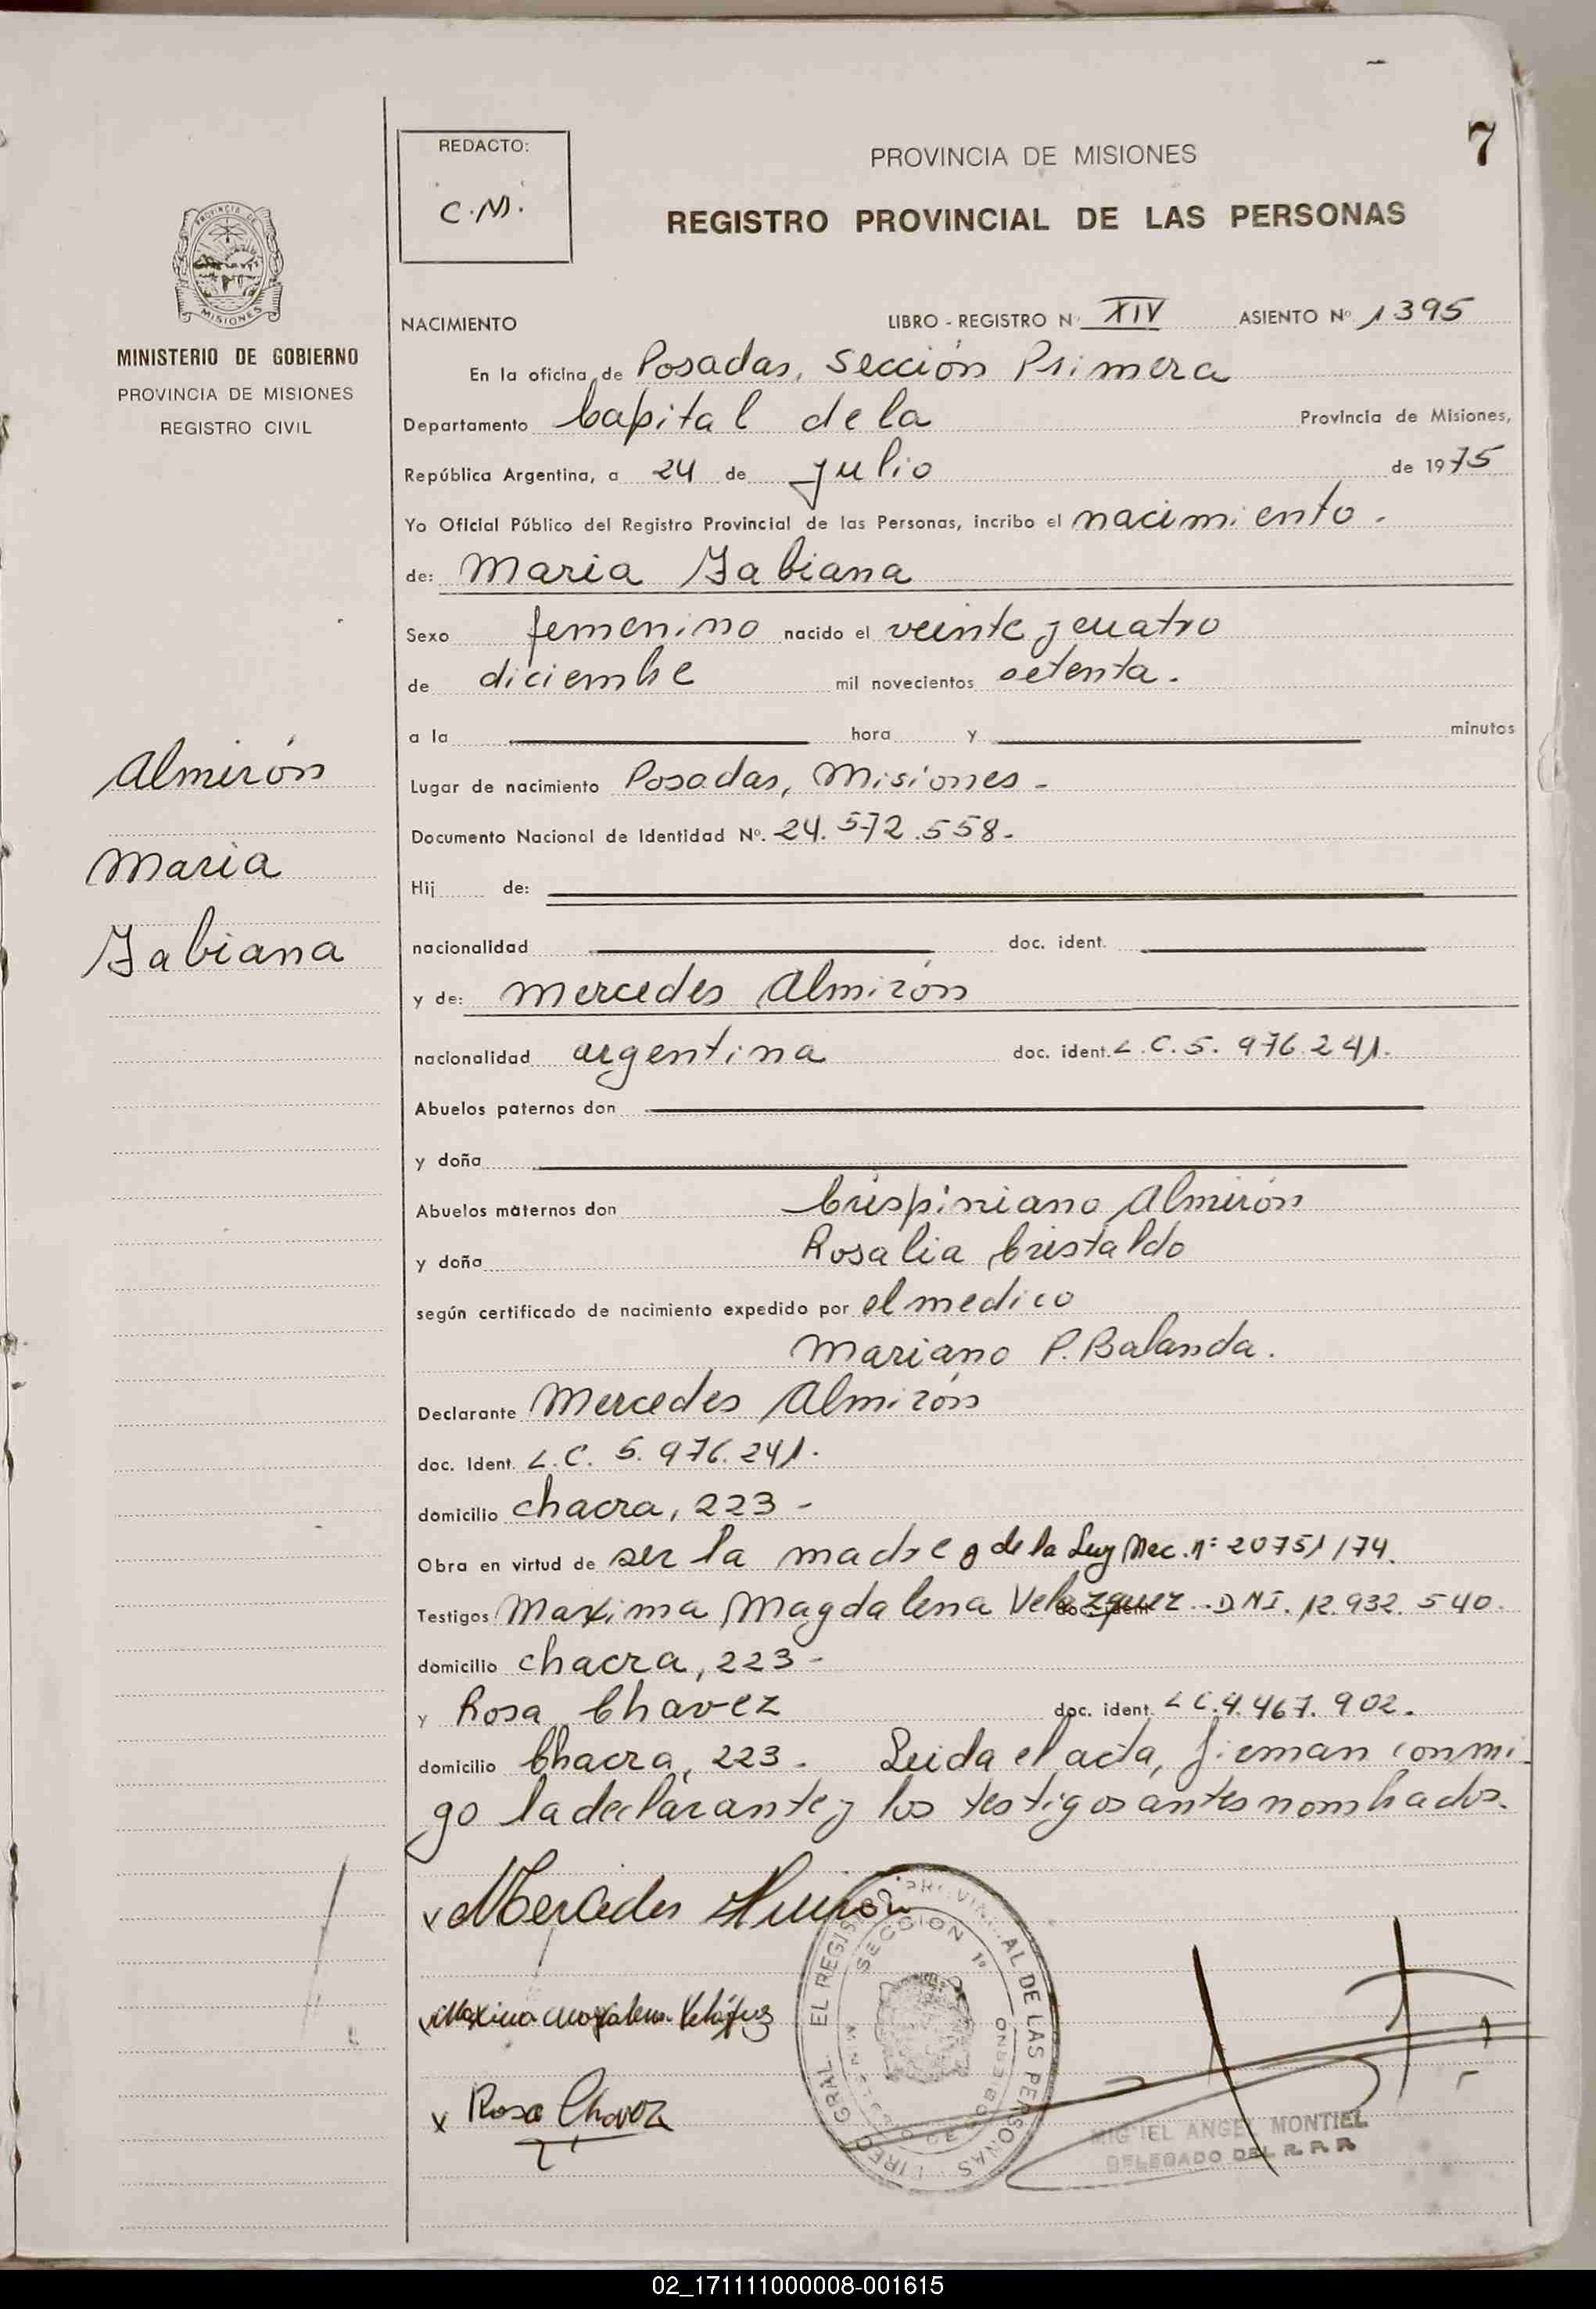 7
REDACTO:
C.M.
PROVINCIA DE MISIONES
REGISTRO PROVINCIAL DE LAS PERSONAS
PROVINCIA DE
MISIONES
MINISTERIO DE GOBIERNO
PROVINCIA DE MISIONES
REGISTRO CIVIL
NACIMIENTO LIBRO - REGISTRO Nº XIV ASIENTO Nº 1395
En la oficina de Posadas, Sección Primera
Departamento Capital de la Provincia de Misiones,
República Argentina, a 24 de julio de 1975
Yo Oficial Público del Registro Provincial de las Personas, incribo el nacimiento.
de: Maria Fabiana
Sexo femenino nacido el veinte y cuatro
de diciembre mil novecientos setenta.
a la hora y minutos
Almirón
Maria
Fabiana
Lugar de nacimiento Posadas, Misiones -
Documento Nacional de Identidad Nº. 24.572.558.
Hij de:
nacionalidad doc. ident.
y de: Mercedes Almirón
nacionalidad argentina doc. ident. L.C. 5.976.241.
Abuelos paternos don
y doña
Abuelos maternos don Crispiniano Almirón
y doña Rosalia Cristaldo
según certificado de nacimiento expedido por el medico
Mariano P. Balanda.
Declarante Mercedes Almirón
doc. Ident. L.C. 5.976.241.
domicilio chacra, 223 -
Obra en virtud de ser la madre y de la Ley Nac. nº 20751/74.
Testigos Maxima Magdalena Velazquez doc. ident D.N.I. 12.932.540.
domicilio chacra, 223 -
y Rosa Chavez doc. ident. L.C. 4.467.902.
domicilio Chacra, 223. Leida el acta, firman conmi
go la declarante y los testigos antes nombrados.
x Mercedes Almirón
x Maxima Magdalena Velázquez
x Rosa Chavez
REGISTRO PROVINCIAL DE LAS PERSONAS
SECCION 1ª
MIGUEL ANGEL MONTIEL
DELEGADO DEL R. P. P.
02_171111000008-001615